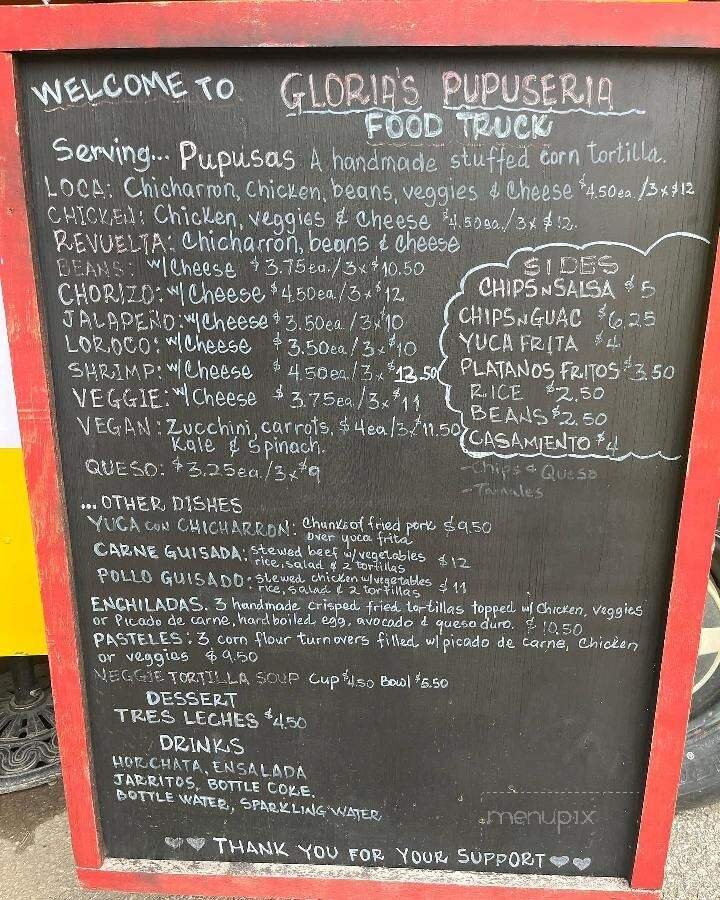 WELCOME TO GLORIA'S PUPUSERIA
FOOD TRUCK
Serving... Pupusas A handmade stuffed corn tortilla.
LOCA: Chicharron, Chicken, beans, veggies & Cheese $4.50ea./3x$12
CHICKEN: Chicken, veggies & Cheese $4.50ea./3x$12.
REVUELTA: Chicharrón, beans & cheese
BEANS: w/Cheese $3.75ea./3x$10.50
CHORIZO: w/Cheese $4.50ea./3x$12
JALAPEÑO: w/Cheese $3.50ea./3x$10
LOROCO: w/Cheese $3.50ea./3x$10
SHRIMP: w/Cheese $4.50ea/3x$13.50
VEGGIE: w/Cheese $3.75ea/3x$11
VEGAN: Zucchini, carrots, $4ea/3x$11.50
Kale & Spinach.
QUESO: $3.25ea./3x$9
SIDES
CHIPS N SALSA $5
CHIPS N GUAC $6.25
YUCA FRITA $4
PLATANOS FRITOS $3.50
RICE $2.50
BEANS $2.50
CASAMIENTO $4
-Chips & Queso
-Tamales
...OTHER DISHES
YUCA CON CHICHARRON: Chunks of fried pork $9.50
over yuca frita
CARNE GUISADA: stewed beef w/vegetables $12
rice, salad & 2 tortillas
POLLO GUISADO: stewed chicken w/vegetables $11
rice, salad & 2 tortillas
ENCHILADAS. 3 handmade crisped fried tortillas topped w/ Chicken, veggies
or Picado de carne, hard boiled egg, avocado & queso duro. $10.50
PASTELES: 3 corn flour turnovers filled w/ picado de carne, Chicken
or veggies $9.50
VEGGIE TORTILLA SOUP Cup $4.50 Bowl $5.50
DESSERT
TRES LECHES $4.50
DRINKS
HORCHATA, ENSALADA
JARRITOS, BOTTLE COKE.
BOTTLE WATER, SPARKLING WATER
menupix
THANK YOU FOR YOUR SUPPORT